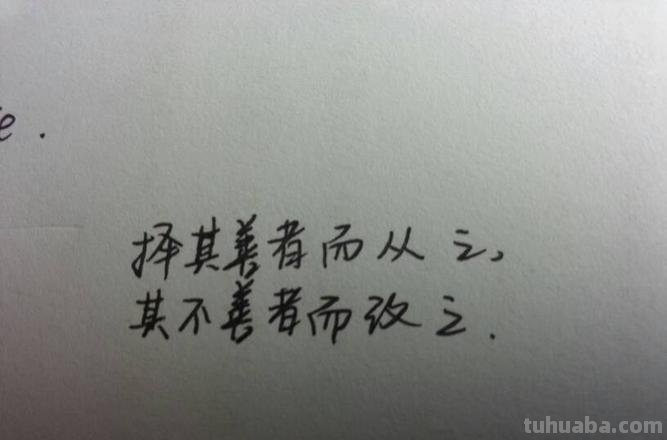 e.
择其善者而从之,
其不善者而改之.
tuhuaba.com